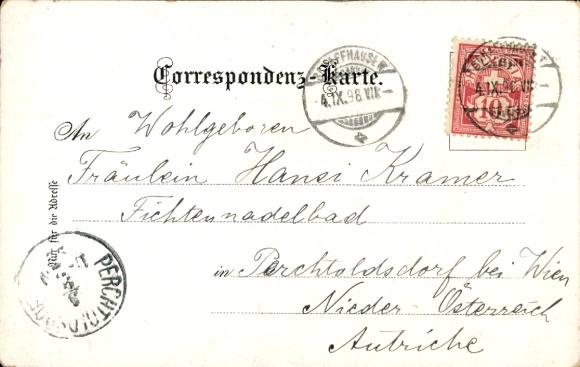 Correspondenz-Karte.
SCHAFFHAUSEN
4.IX.98.VII
HELVETIA
10
4.IX.98.VII
An Wohlgeboren
Fräulein Hansi Kramer
Fichtennadelbad
in Perchtoldsdorf bei Wien
Nieder-Österreich
Autriche
Nur für die Adresse
PERCHTOLDSDORF